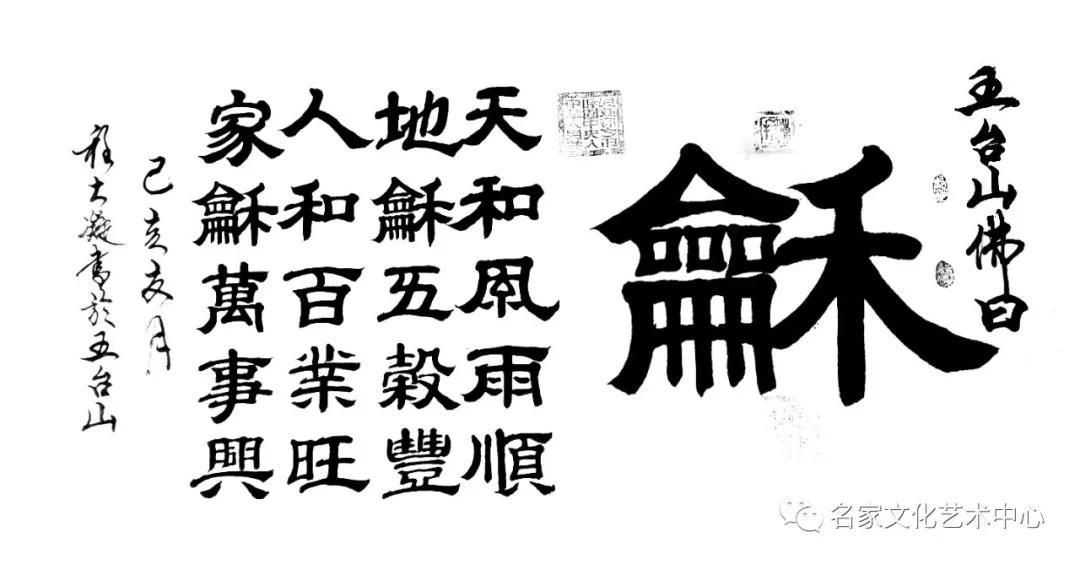 五台山佛曰
龢
天和風雨順
地龢五榖豐
人和百業旺
家龢萬事興
己亥友月
大凝書於五台山
名家文化艺术中心